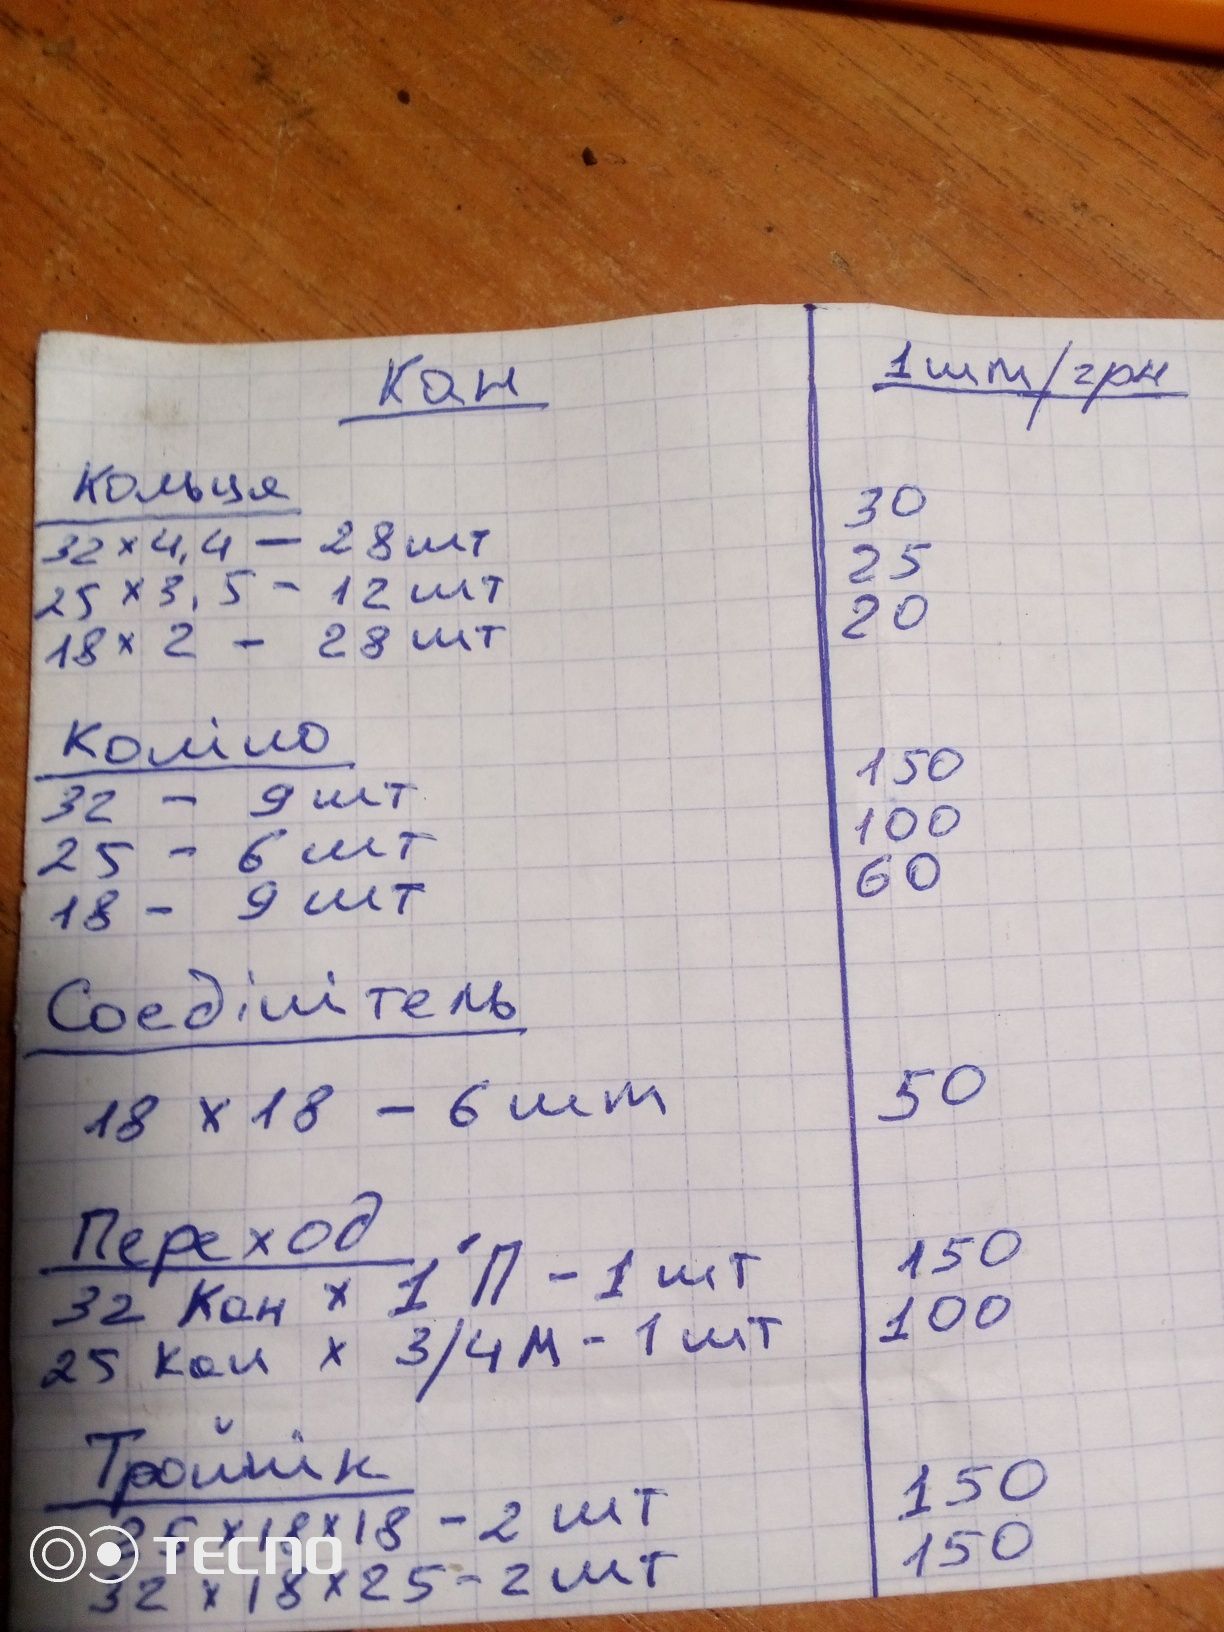 Кан 1шт/грн
Кольця
32 × 4,4 – 28 шт 30
25 × 3,5 – 12 шт 25
18 × 2 – 28 шт 20
Коліно
32 – 9 шт 150
25 – 6 шт 100
18 – 9 шт 60
Соеділітель
18 × 18 – 6 шт 50
Переход
32 Кан × 1" П – 1 шт 150
25 Кан × 3/4 М – 1 шт 100
Тройнік
25×18×18 – 2 шт 150
32 × 18 × 25 – 2 шт 150
TECNO